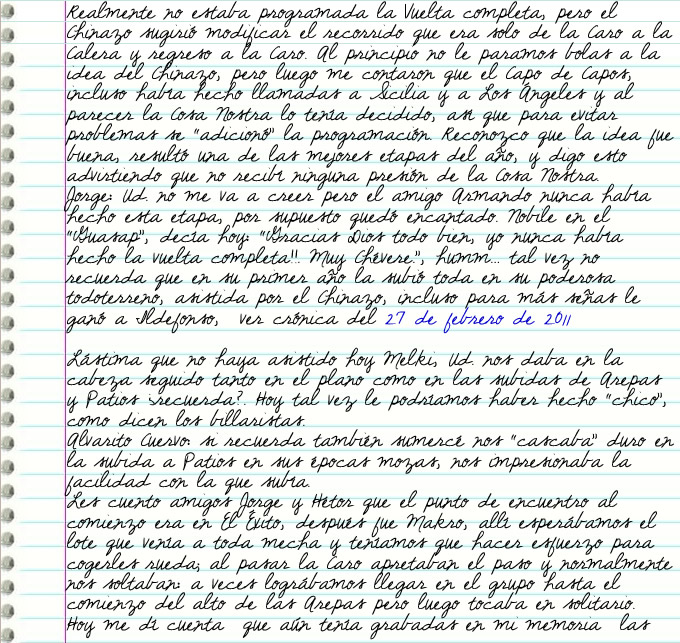 Realmente no estaba programada la Vuelta completa, pero el
Chinazo sugirió modificar el recorrido que era solo de la Caro a la
Calera y regreso a la Caro. Al principio no le paramos bolas a la
idea del Chinazo, pero luego me contaron que el Capo de Capos,
incluso había hecho llamadas a Sicilia y a Los Ángeles y al
parecer la Cosa Nostra lo tenía decidido, asi que para evitar
problemas se "adicionó" la programación. Reconozco que la idea fue
buena, resultó una de las mejores etapas del año, y digo esto
advirtiendo que no recibí ninguna presión de la Cosa Nostra.
Jorge: Ud. no me va a creer pero el amigo Armando nunca había
hecho esta etapa, por supuesto quedó encantado. Nobile en el
"Guasap", decía hoy: "Gracias Dios todo bien, yo nunca había
hecho la vuelta completa!!. Muy Chévere.", humm... tal vez no
recuerda que en su primer año la subió toda en su poderosa
todoterreno, asistida por el Chinazo, incluso para más señas le
ganó a Ildefonso, ver crónica del 27 de febrero de 2011
Lástima que no haya asistido hoy Melki, Ud. nos daba en la
cabeza seguido tanto en el plano como en las subidas de Arepas
y Patios ¿recuerda?. Hoy tal vez le podríamos haber hecho "chico",
como dicen los billaristas.
Alvarito Cuervo: si recuerda también sumercé nos "cascaba" duro en
la subida a Patios en sus épocas mozas, nos impresionaba la
facilidad con la que subía.
Les cuento amigos Jorge y Hétor que el punto de encuentro al
comienzo era en El Éxito, después fue Makro, allí esperábamos el
lote que venía a toda mecha y teníamos que hacer esfuerzo para
cogerles rueda; al pasar la Caro apretaban el paso y normalmente
nos soltaban: a veces lográbamos llegar en el grupo hasta el
comienzo del alto de las Arepas pero luego tocaba en solitario.
Hoy me dí cuenta que aún tenía grabadas en mi memoria las